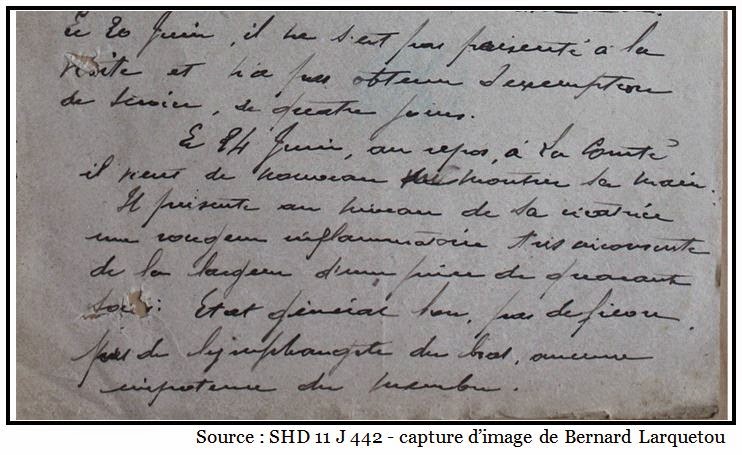 Le 20 Juin, il ne s'est pas présenté à la
visite et n'a pas obtenu d'exemption
de service, de quatre jours.
Le 24 Juin, au repos, à La Comté
il vient de nouveau montrer sa main.
Il présente au niveau de sa cicatrice
une rougeur inflammatoire très circonscrite
de la largeur d'une pièce de quarante
sous. Etat général bon, pas de fièvre,
pas de lymphangite du bras, aucune
impotence du membre.
Source : SHD 11 J 442 - capture d'image de Bernard Larquetou